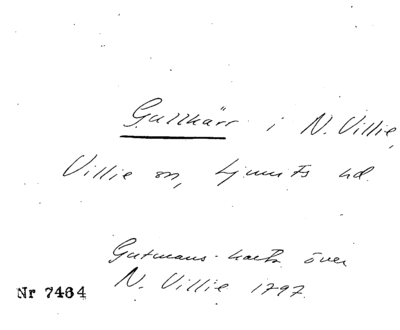 Gullkärr i N. Villie,
Villie sn, Ljunits hd.
Gutmans karta över
N. Villie 1797.
Nr 7464